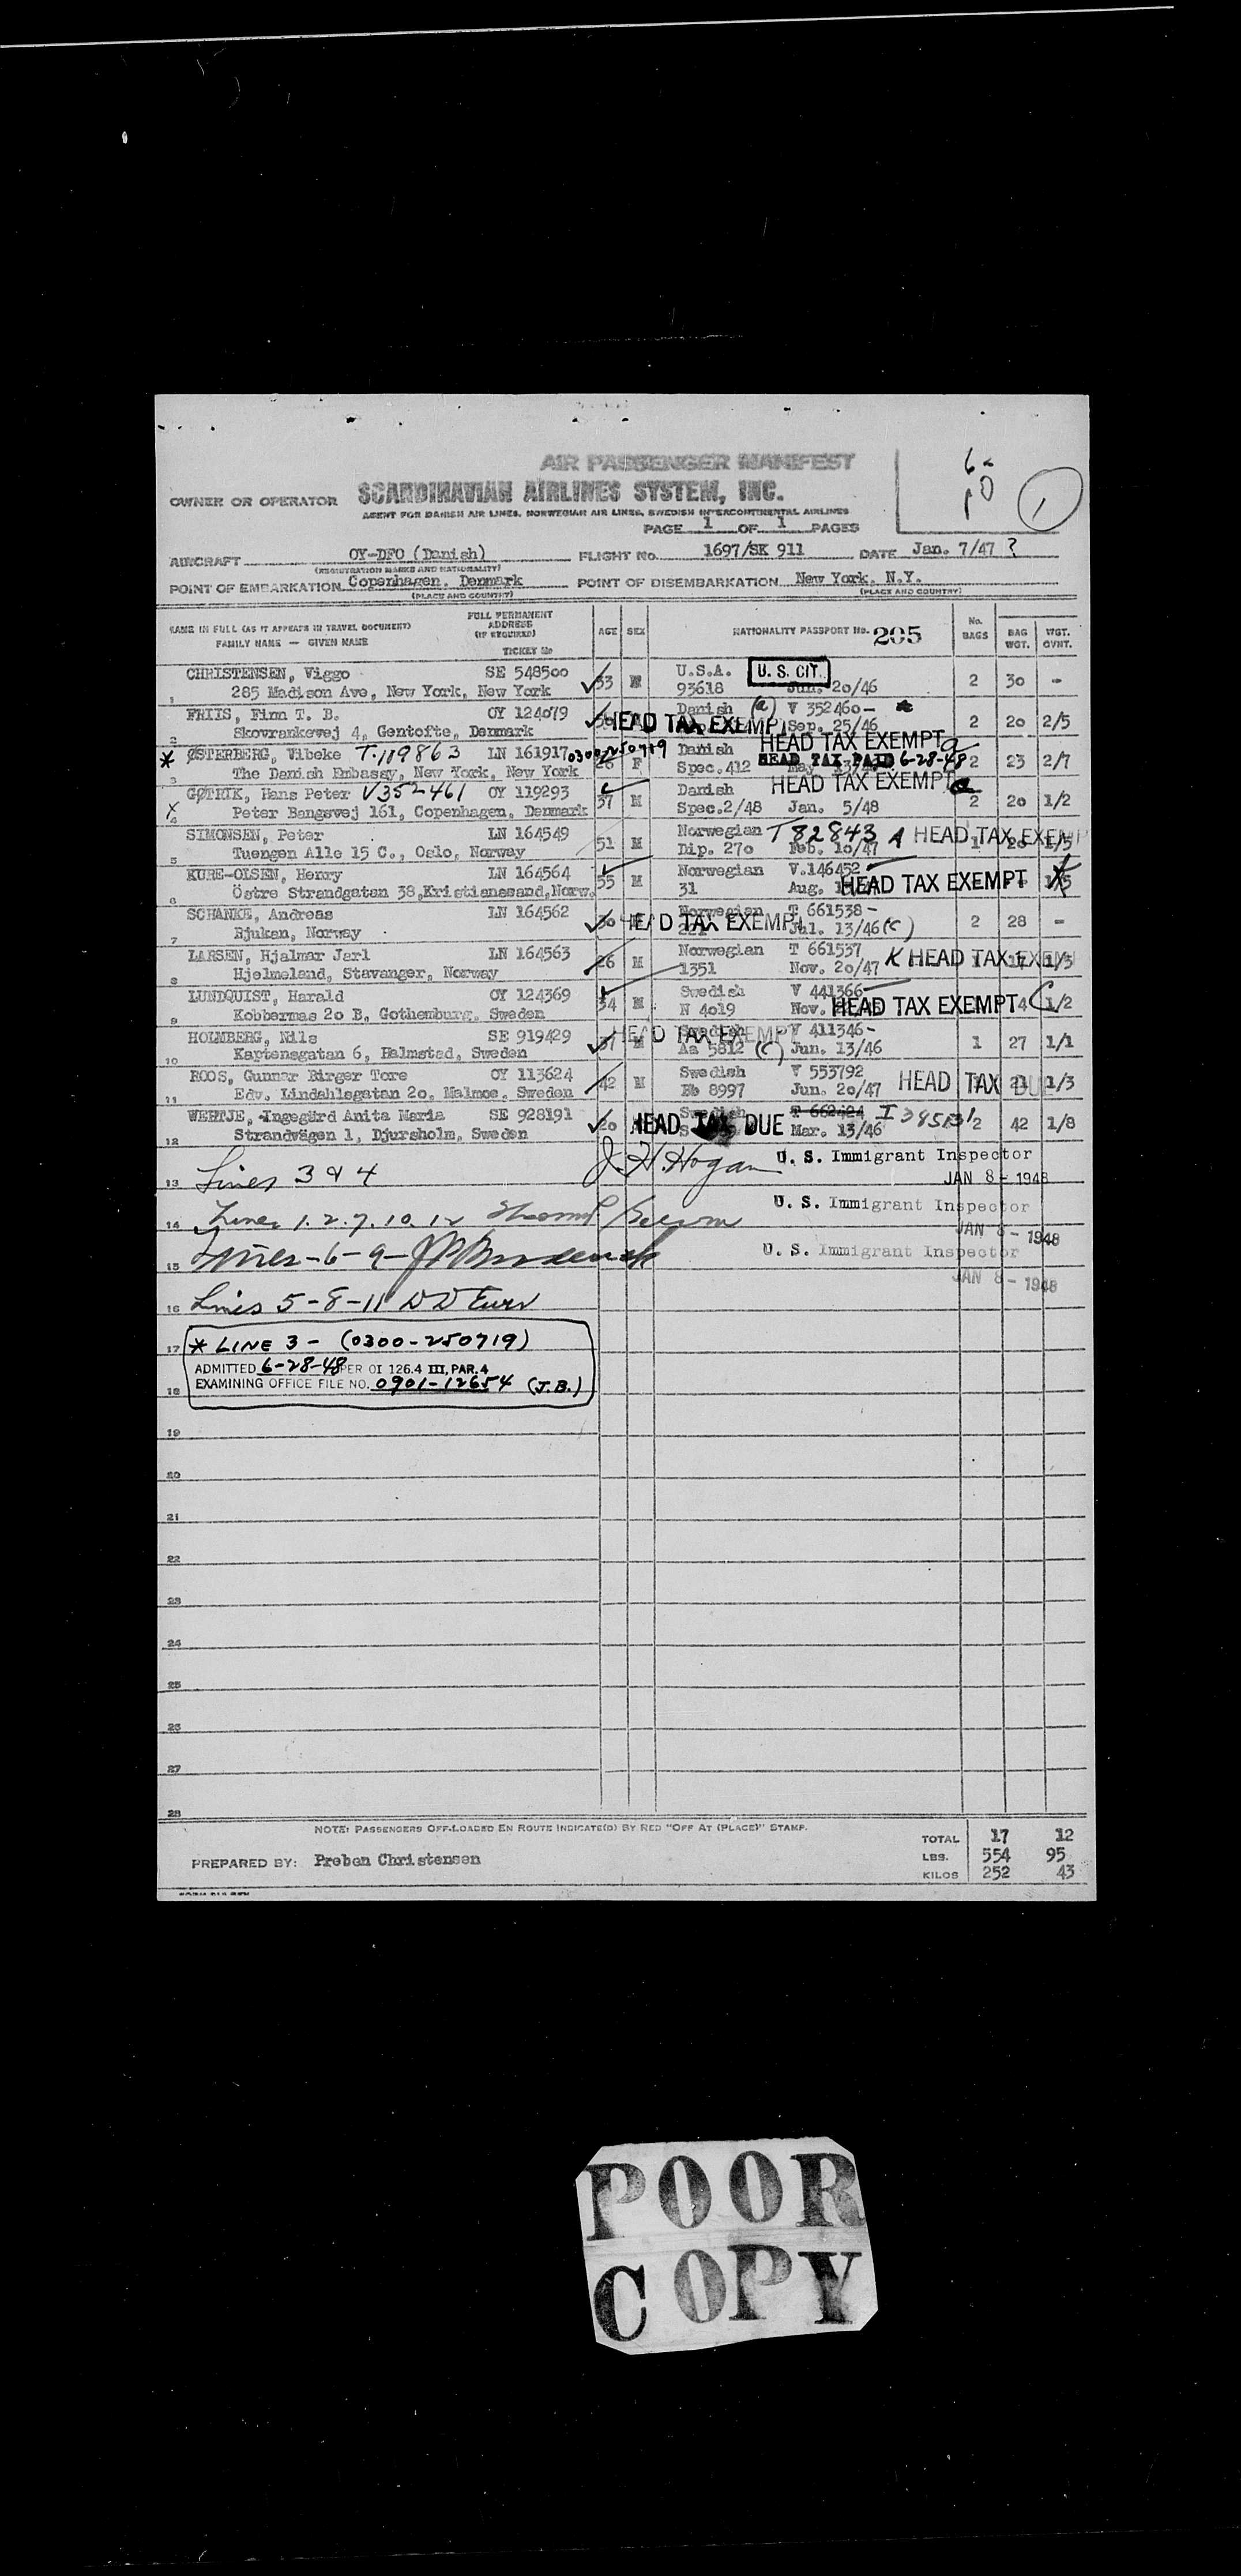 AIR PASSENGER MANIFEST
OWNER OR OPERATOR SCANDINAVIAN AIRLINES SYSTEM, INC.
AGENT FOR DANISH AIR LINES, NORWEGIAN AIR LINES, SWEDISH INTERCONTINENTAL AIRLINES
PAGE 1 OF 1 PAGES
1
AIRCRAFT OY-DFO (Danish) FLIGHT No. 1697/SK 911 DATE Jan. 7/47 ?
(REGISTRATION MARKS AND NATIONALITY)
POINT OF EMBARKATION Copenhagen, Denmark POINT OF DISEMBARKATION New York, N.Y.
(PLACE AND COUNTRY) (PLACE AND COUNTRY)
NAME IN FULL (AS IT APPEARS IN TRAVEL DOCUMENT) FULL PERMANENT ADDRESS (IF REQUIRED) AGE SEX NATIONALITY PASSPORT No. 205 No. BAGS BAG WGT. WGT. OVNT.
FAMILY NAME — GIVEN NAME TICKET No
CHRISTENSEN, Viggo SE 548500 U.S.A. U. S. CIT.
1 285 Madison Ave, New York, New York 53 M 93618 Jun. 20/46 2 30 -
FRIIS, Finn T. B. OY 124079 Danish (a) V 352460-
2 Skovrankevej 4, Gentofte, Denmark HEAD TAX EXEMPT Sep. 25/46 2 20 2/5
* ØSTERBERG, Vibeke T.119863 LN 161917 0300-250719 Danish HEAD TAX EXEMPT a
3 The Danish Embassy, New York, New York 26 F Spec.412 HEAD TAX PAID 6-28-48 2 23 2/7
GØTRIK, Hans Peter V352461 OY 119293 Danish HEAD TAX EXEMPT a
X 4 Peter Bangsvej 161, Copenhagen, Denmark 37 M Spec.2/48 Jan. 5/48 2 20 1/2
SIMONSEN, Peter LN 164549 Norwegian T 82843 A HEAD TAX EXEMP
5 Tuengen Alle 15 C., Oslo, Norway 51 M Dip. 270 Feb. 10/47 1 20 1/5
KURE-OLSEN, Henry LN 164564 Norwegian V.146452
6 Östre Strandgaten 38,Kristiansand,Norw. 55 M 31 Aug. HEAD TAX EXEMPT 1/5
SCHANKE, Andreas LN 164562 Norwegian T 661538-
7 Rjukan, Norway 30 HEAD TAX EXEMPT Jul. 13/46 (c) 2 28 -
LARSEN, Hjalmar Jarl LN 164563 Norwegian T 661537
8 Hjelmeland, Stavanger, Norway 26 M 1351 Nov. 20/47 K HEAD TAX EXEM 1/3
LUNDQUIST, Harald OY 124369 Swedish V 441366
9 Kobbermas 20 B, Gothenburg, Sweden 34 M N 4019 Nov. HEAD TAX EXEMPT C 1/2
HOLMBERG, Nils SE 919429 HEAD TAX EXEMPT Swedish V 411346-
10 Kaptensgatan 6, Halmstad, Sweden 37 M Aa 5812 (c) Jun. 13/46 1 27 1/1
ROOS, Gunnar Birger Tore OY 113624 Swedish V 553792
11 Edv. Lindahlsgatan 20, Malmoe, Sweden 42 M Bb 8997 Jun. 20/47 HEAD TAX DUE 21 1/3
WEHTJE, Ingegärd Anita Maria SE 928191 Swedish T 662424 I 385131/2
12 Strandvägen 1, Djursholm, Sweden 20 HEAD TAX DUE Mar. 13/46 2 42 1/8
13 Lines 3 & 4 J. H. Hogan U. S. Immigrant Inspector
JAN 8 - 1948
14 Lines 1. 2. 7. 10. 12 U. S. Immigrant Inspector
JAN 8 - 1948
15 Lines - 6 - 9 - U. S. Immigrant Inspector
JAN 8 - 1948
16 Lines 5 - 8 - 11
17 * LINE 3 - (0300-250719)
ADMITTED 6-28-48 PER OI 126.4 III, PAR. 4
18 EXAMINING OFFICE FILE NO. 0901-12654 (J.B.)
19
20
21
22
23
24
25
26
27
28
NOTE: PASSENGERS OFF-LOADED EN ROUTE INDICATE(D) BY RED "OFF AT (PLACE)" STAMP.
TOTAL 17 12
PREPARED BY: Preben Christensen LBS. 554 95
KILOS 252 43
POOR
COPY